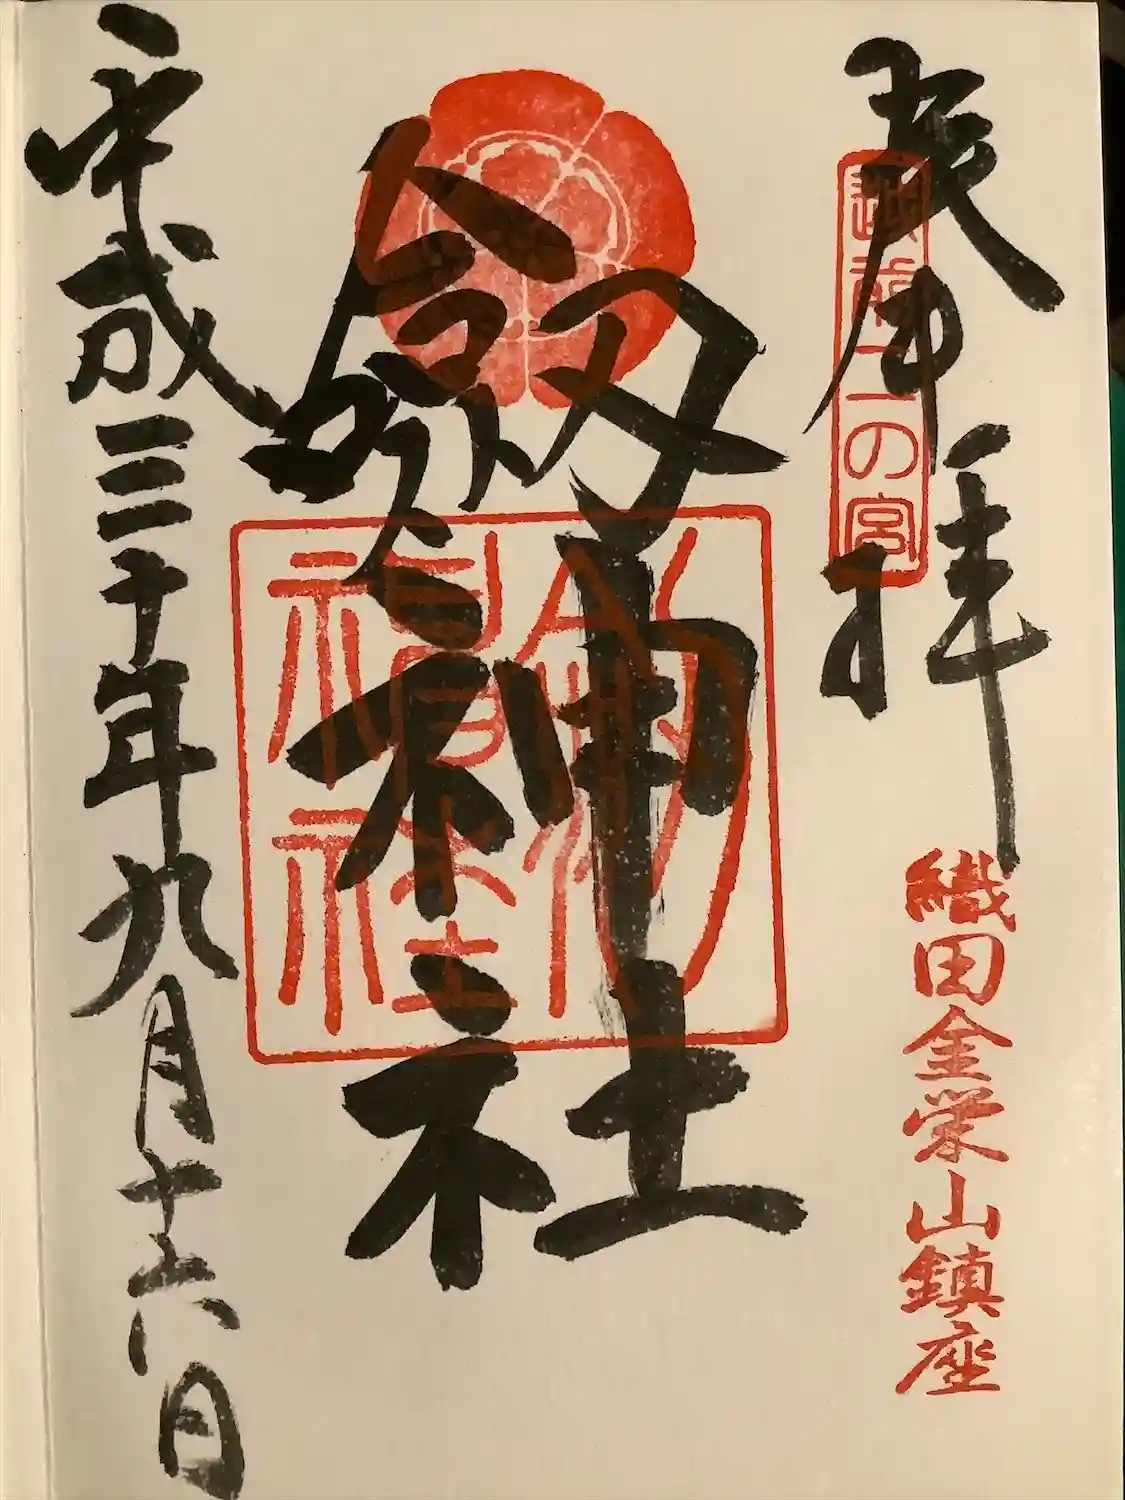 奉拝
越前二の宮
織田金栄山鎮座
劔神社
劔神社
平成三十年九月十六日